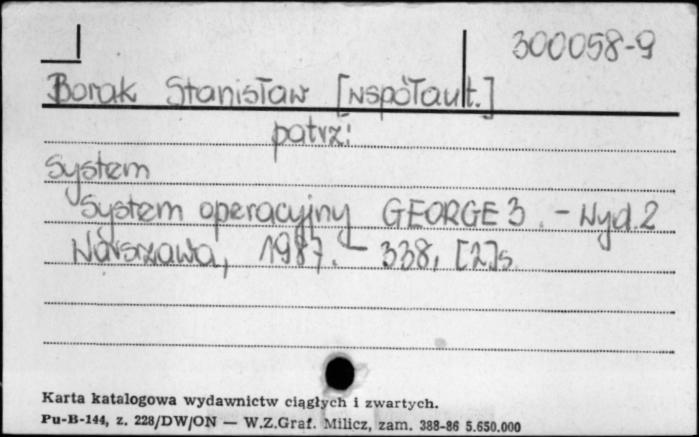 300058-9
Borak Stanisław [współaut.]
patrz:
System
System operacyjny GEORGE 3. - Wyd. 2
Warszawa, 1987. - 338, [2]s
Karta katalogowa wydawnictw ciągłych i zwartych.
Pu-B-144, z. 228/DW/ON — W.Z.Graf. Milicz, zam. 388-86 5.650.000